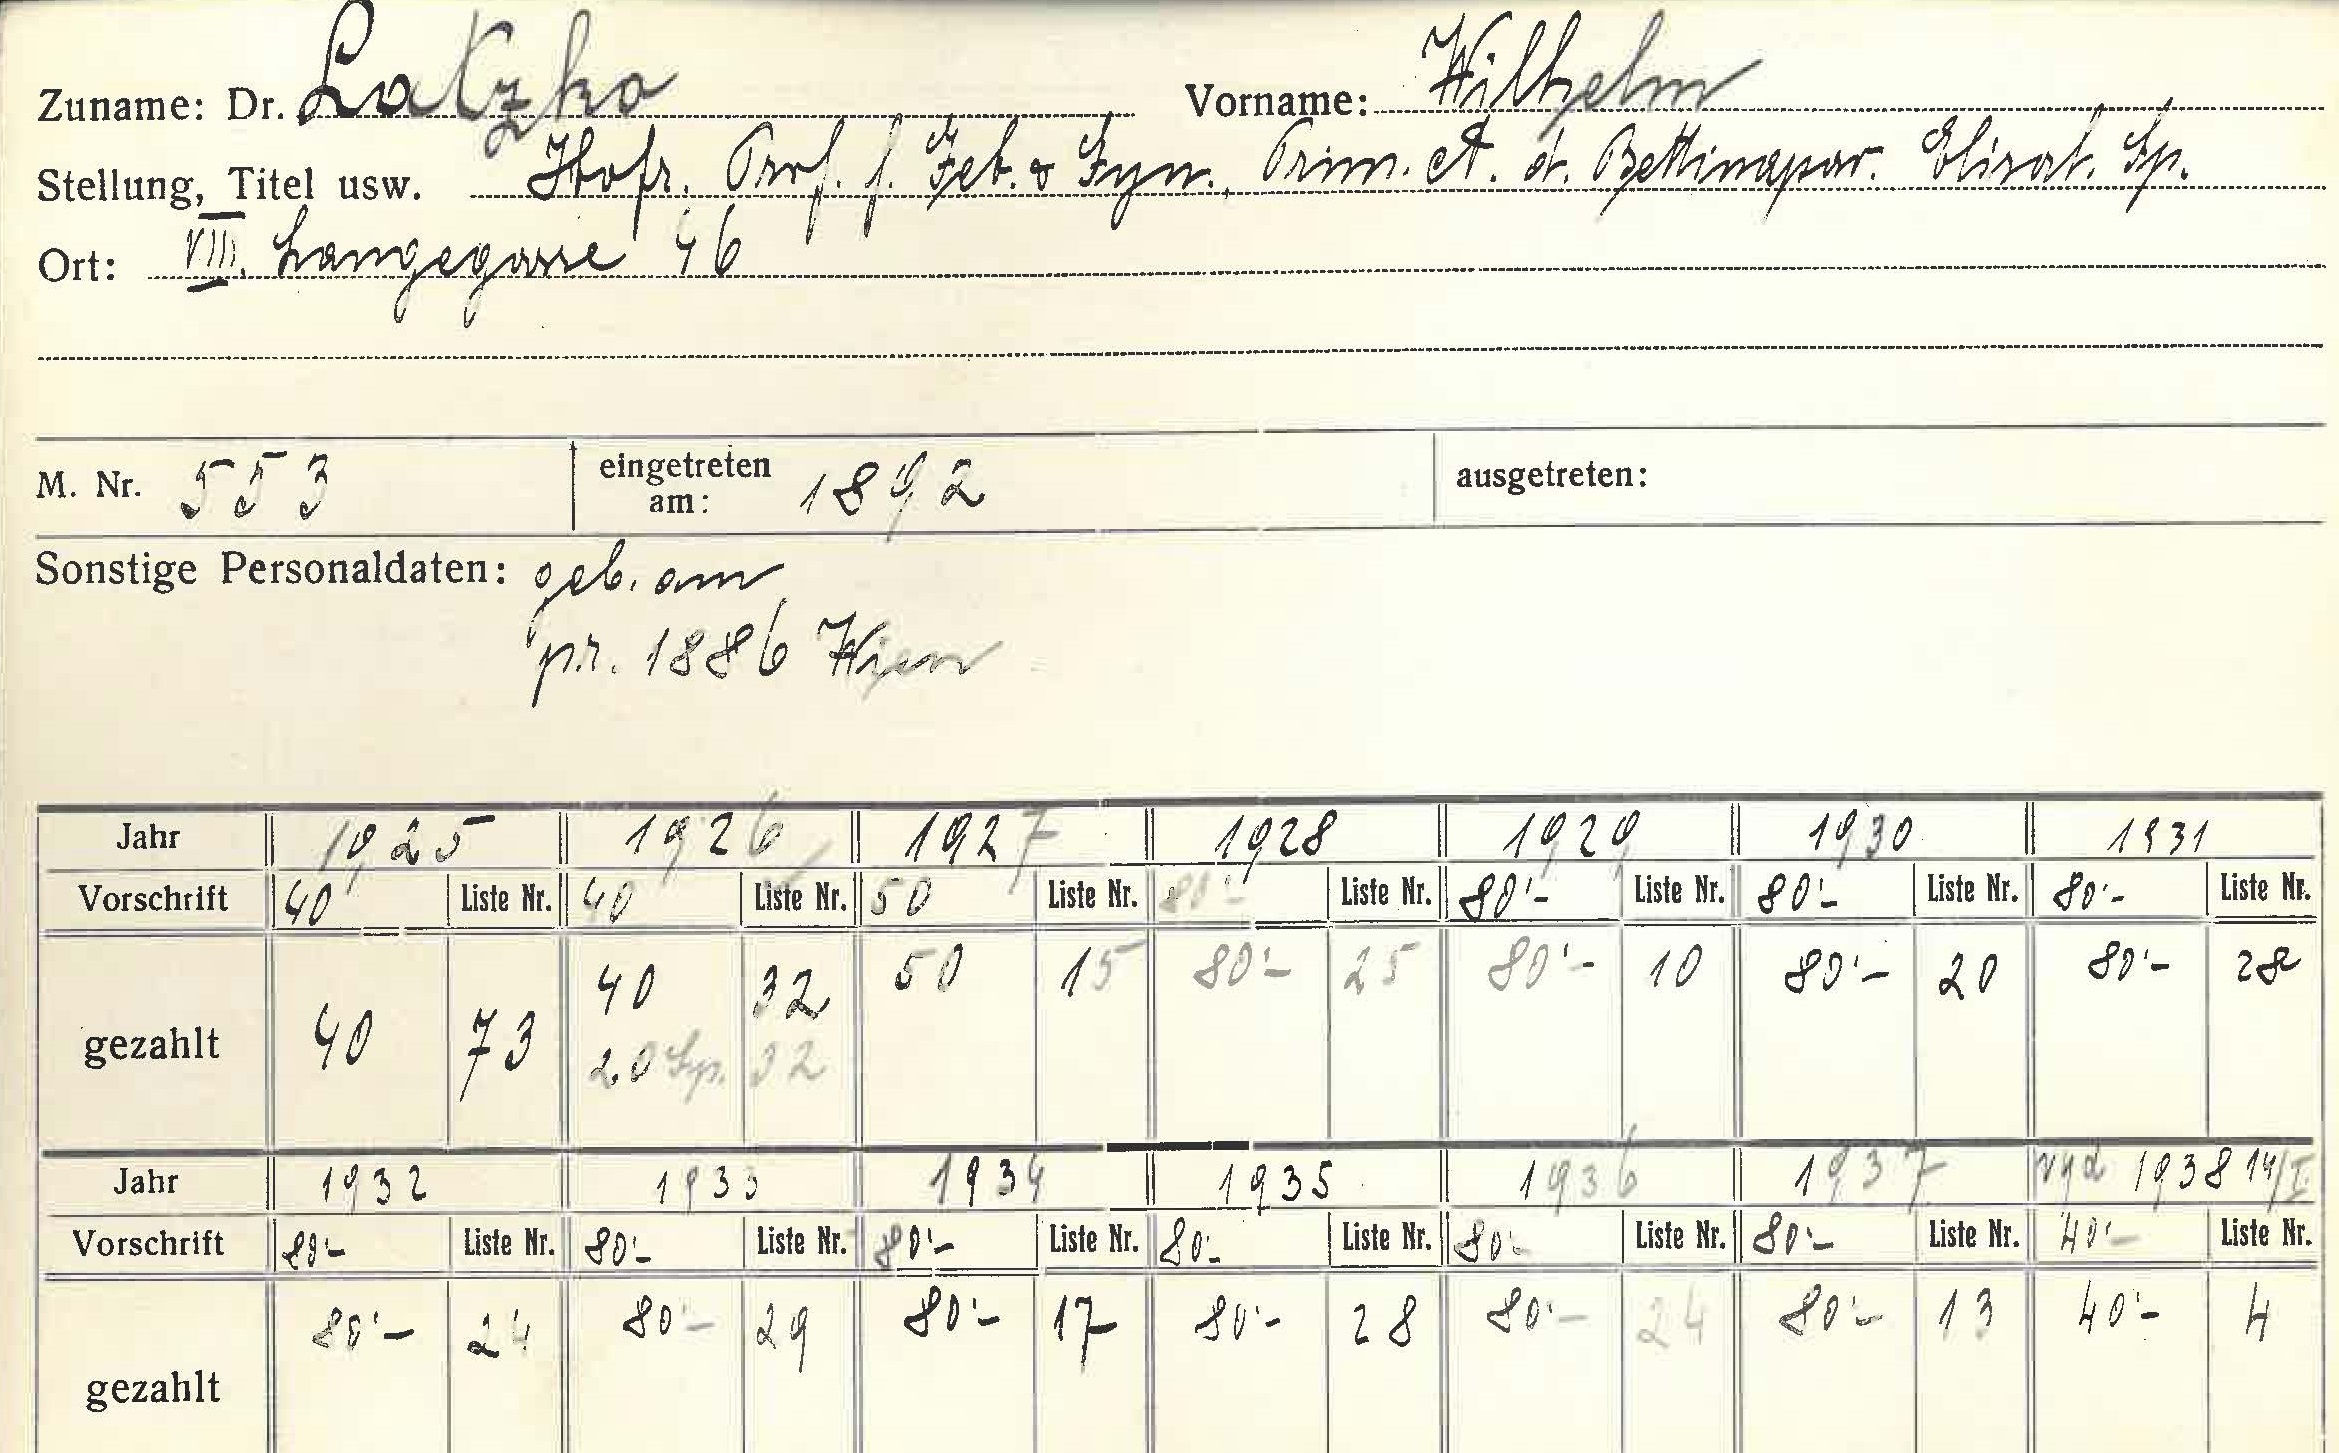 Zuname: Dr. Latzko Vorname: Wilhelm
Stellung, Titel usw. Hofr. Prof. f. Geb. & Gyn., Prim. A. d. Bettinapav. Elisab. Sp.
Ort: VIII. Langegasse 46
M. Nr. 553 eingetreten am: 1892 ausgetreten:
Sonstige Personaldaten: geb. am
pr. 1886 Wien
Jahr 1925 1926 1927 1928 1929 1930 1931
Vorschrift 40 Liste Nr. 40 Liste Nr. 50 Liste Nr. 80'- Liste Nr. 80'- Liste Nr. 80'- Liste Nr. 80'- Liste Nr.
gezahlt 40 73 40 32 50 15 80'- 25 80'- 10 80'- 20 80'- 28
20 Sp. 32
Jahr 1932 1933 1934 1935 1936 1937 1938 14/I
Vorschrift 80'- Liste Nr. 80'- Liste Nr. 80'- Liste Nr. 80'- Liste Nr. 80'- Liste Nr. 80'- Liste Nr. 40'- Liste Nr.
gezahlt 80'- 24 80'- 29 80'- 17 80'- 28 80'- 24 80'- 13 40'- 4